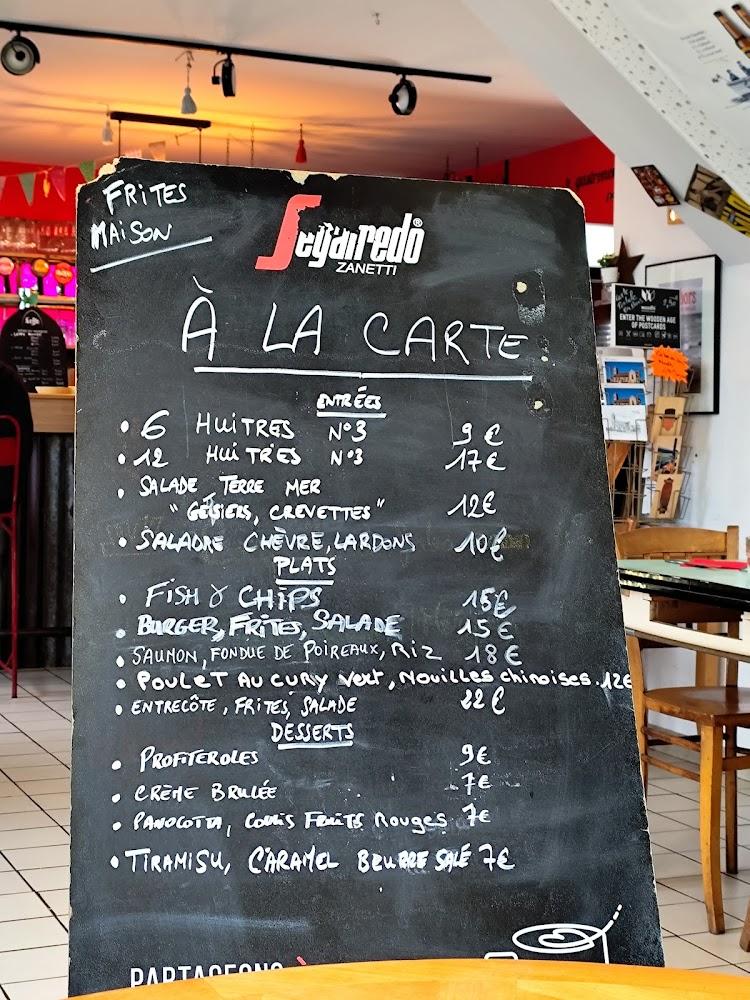 FRITES
MAISON
Segafredo®
ZANETTI
À LA CARTE
ENTRÉES
• 6 HUITRES N°3 9€
• 12 HUITRES N°3 17€
• SALADE TERRE MER
"GÉSIERS, CREVETTES" 12€
• SALADRE CHÈVRE, LARDONS 10€
PLATS
• FISH & CHIPS 15€
• BURGER, FRITES, SALADE 15€
• SAUMON, FONDUE DE POIREAUX, RIZ 18€
• POULET AU CURY VERT, NOUILLES CHINOISES. 12€
• ENTRECÔTE, FRITES, SALADE 22€
DESSERTS
• PROFITEROLES 9€
• CRÈME BRULÉE 7€
• PANOCOTTA, COULIS FRUITS ROUGES 7€
• TIRAMISU, CARAMEL BEURRE SALÉ 7€
PARTAGEONS
ENTER THE WOODEN AGE
OF POSTCARDS